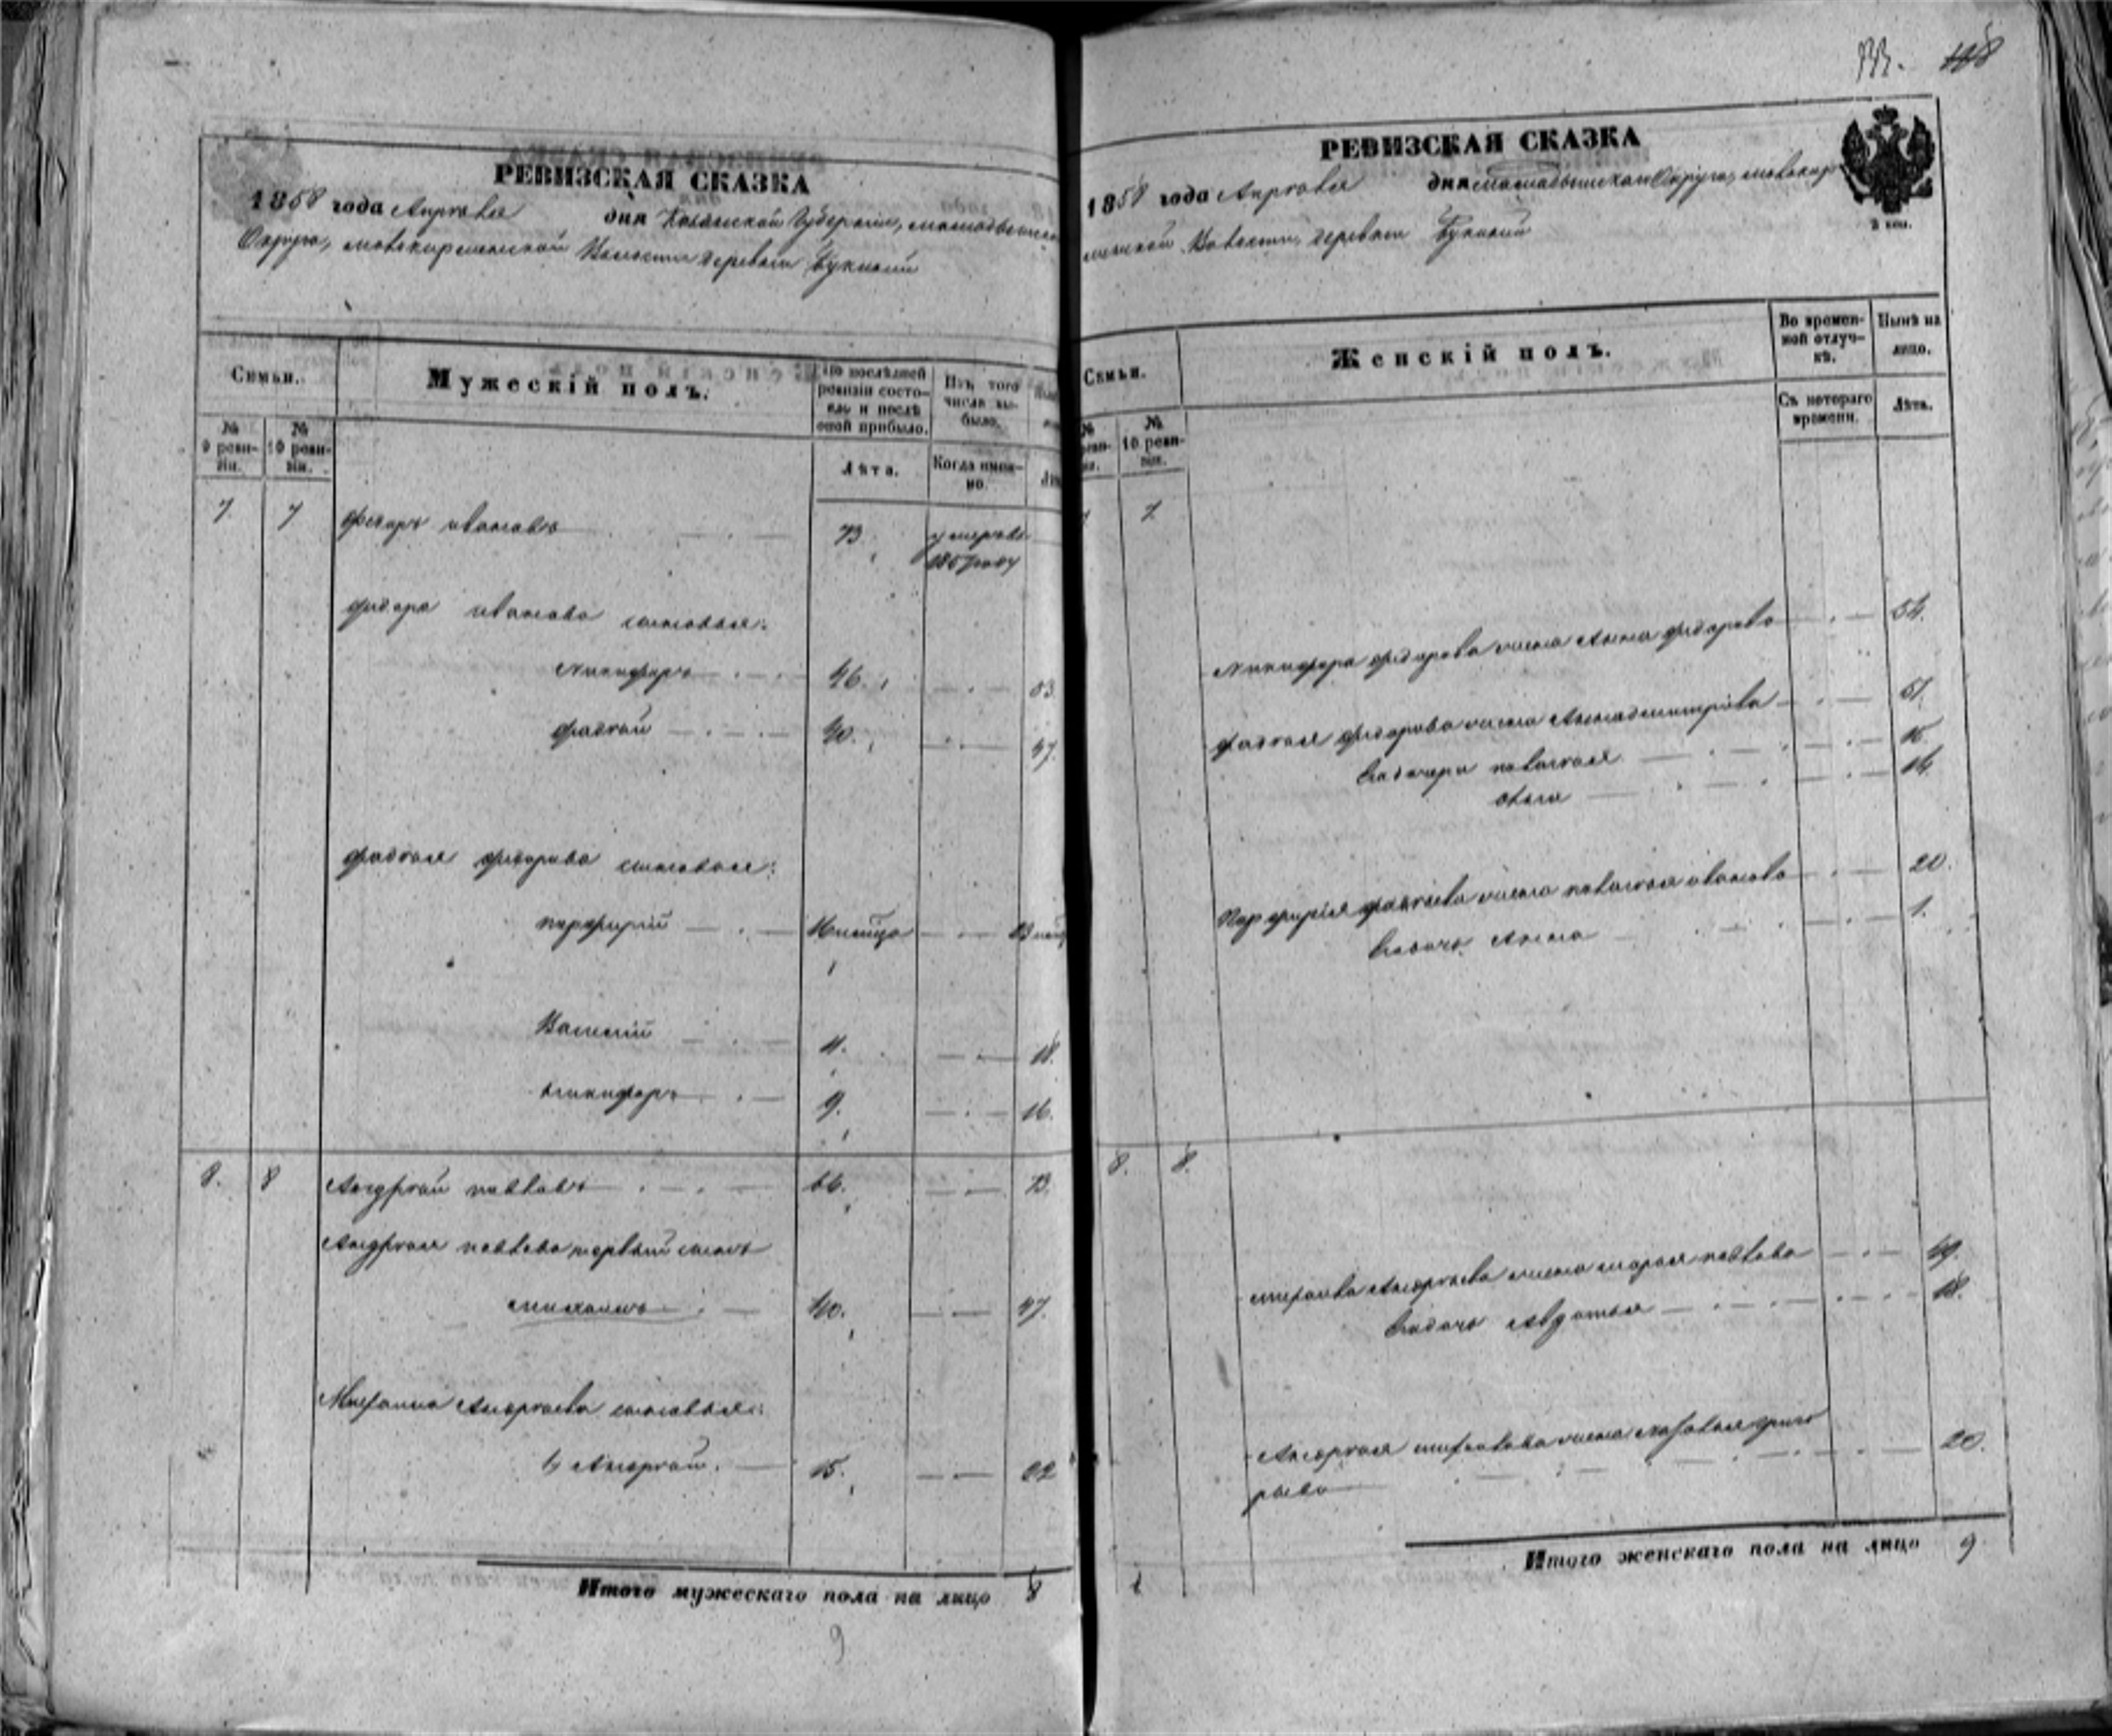 РЕВИЗСКАЯ СКАЗКА
1858 года Апреля дня Казанской Губернии,
Округа, Волости деревни Букеней
Семьи.
Мужескій полъ.
По послѣдней ревизіи состояло и послѣ оной прибыло.
Изъ того числа выбыло.
№ 9 ревизіи.
№ 10 ревизіи.
Лѣта.
Когда именно.
7. 7 Федоръ Ивановъ 73. умеръ въ 1857 году
Федора Иванова сыновья:
Никифоръ 46. 53.
Фадей 40. 47.
Фадея Федорова сыновья:
Порфирій 23
Василій 11. 18.
Никифоръ 9. 16.
8. 8 Андрей Павловъ 66. 73.
Андрея Павлова первый сынъ
Михаилъ 40. 47.
Михаила Андреева сыновья:
1, Андрей. 15. 22
Итого мужескаго пола на лицо 8
9
118
РЕВИЗСКАЯ СКАЗКА
1858 года Апреля дня Округа,
Волости, деревни Букеней
2 коп.
Семьи.
Женскій полъ.
Во временной отлучкѣ.
Нынѣ на лицо.
№ 10 ревизіи.
Съ котораго времени.
Лѣта.
7.
Никифора Федорова жена Анна Федорова 54.
Фадея Федорова жена Анна Дмитріева 51.
Пелагея 16.
14.
Порфирія Фадеева жена Пелагея Иванова 20.
Анна 1.
8. 8.
Михаила Андреева жена Марья Павлова 49.
Авдотья 18.
Андрея Михайлова жена Григо
рьева 20.
Итого женскаго пола на лицо 9